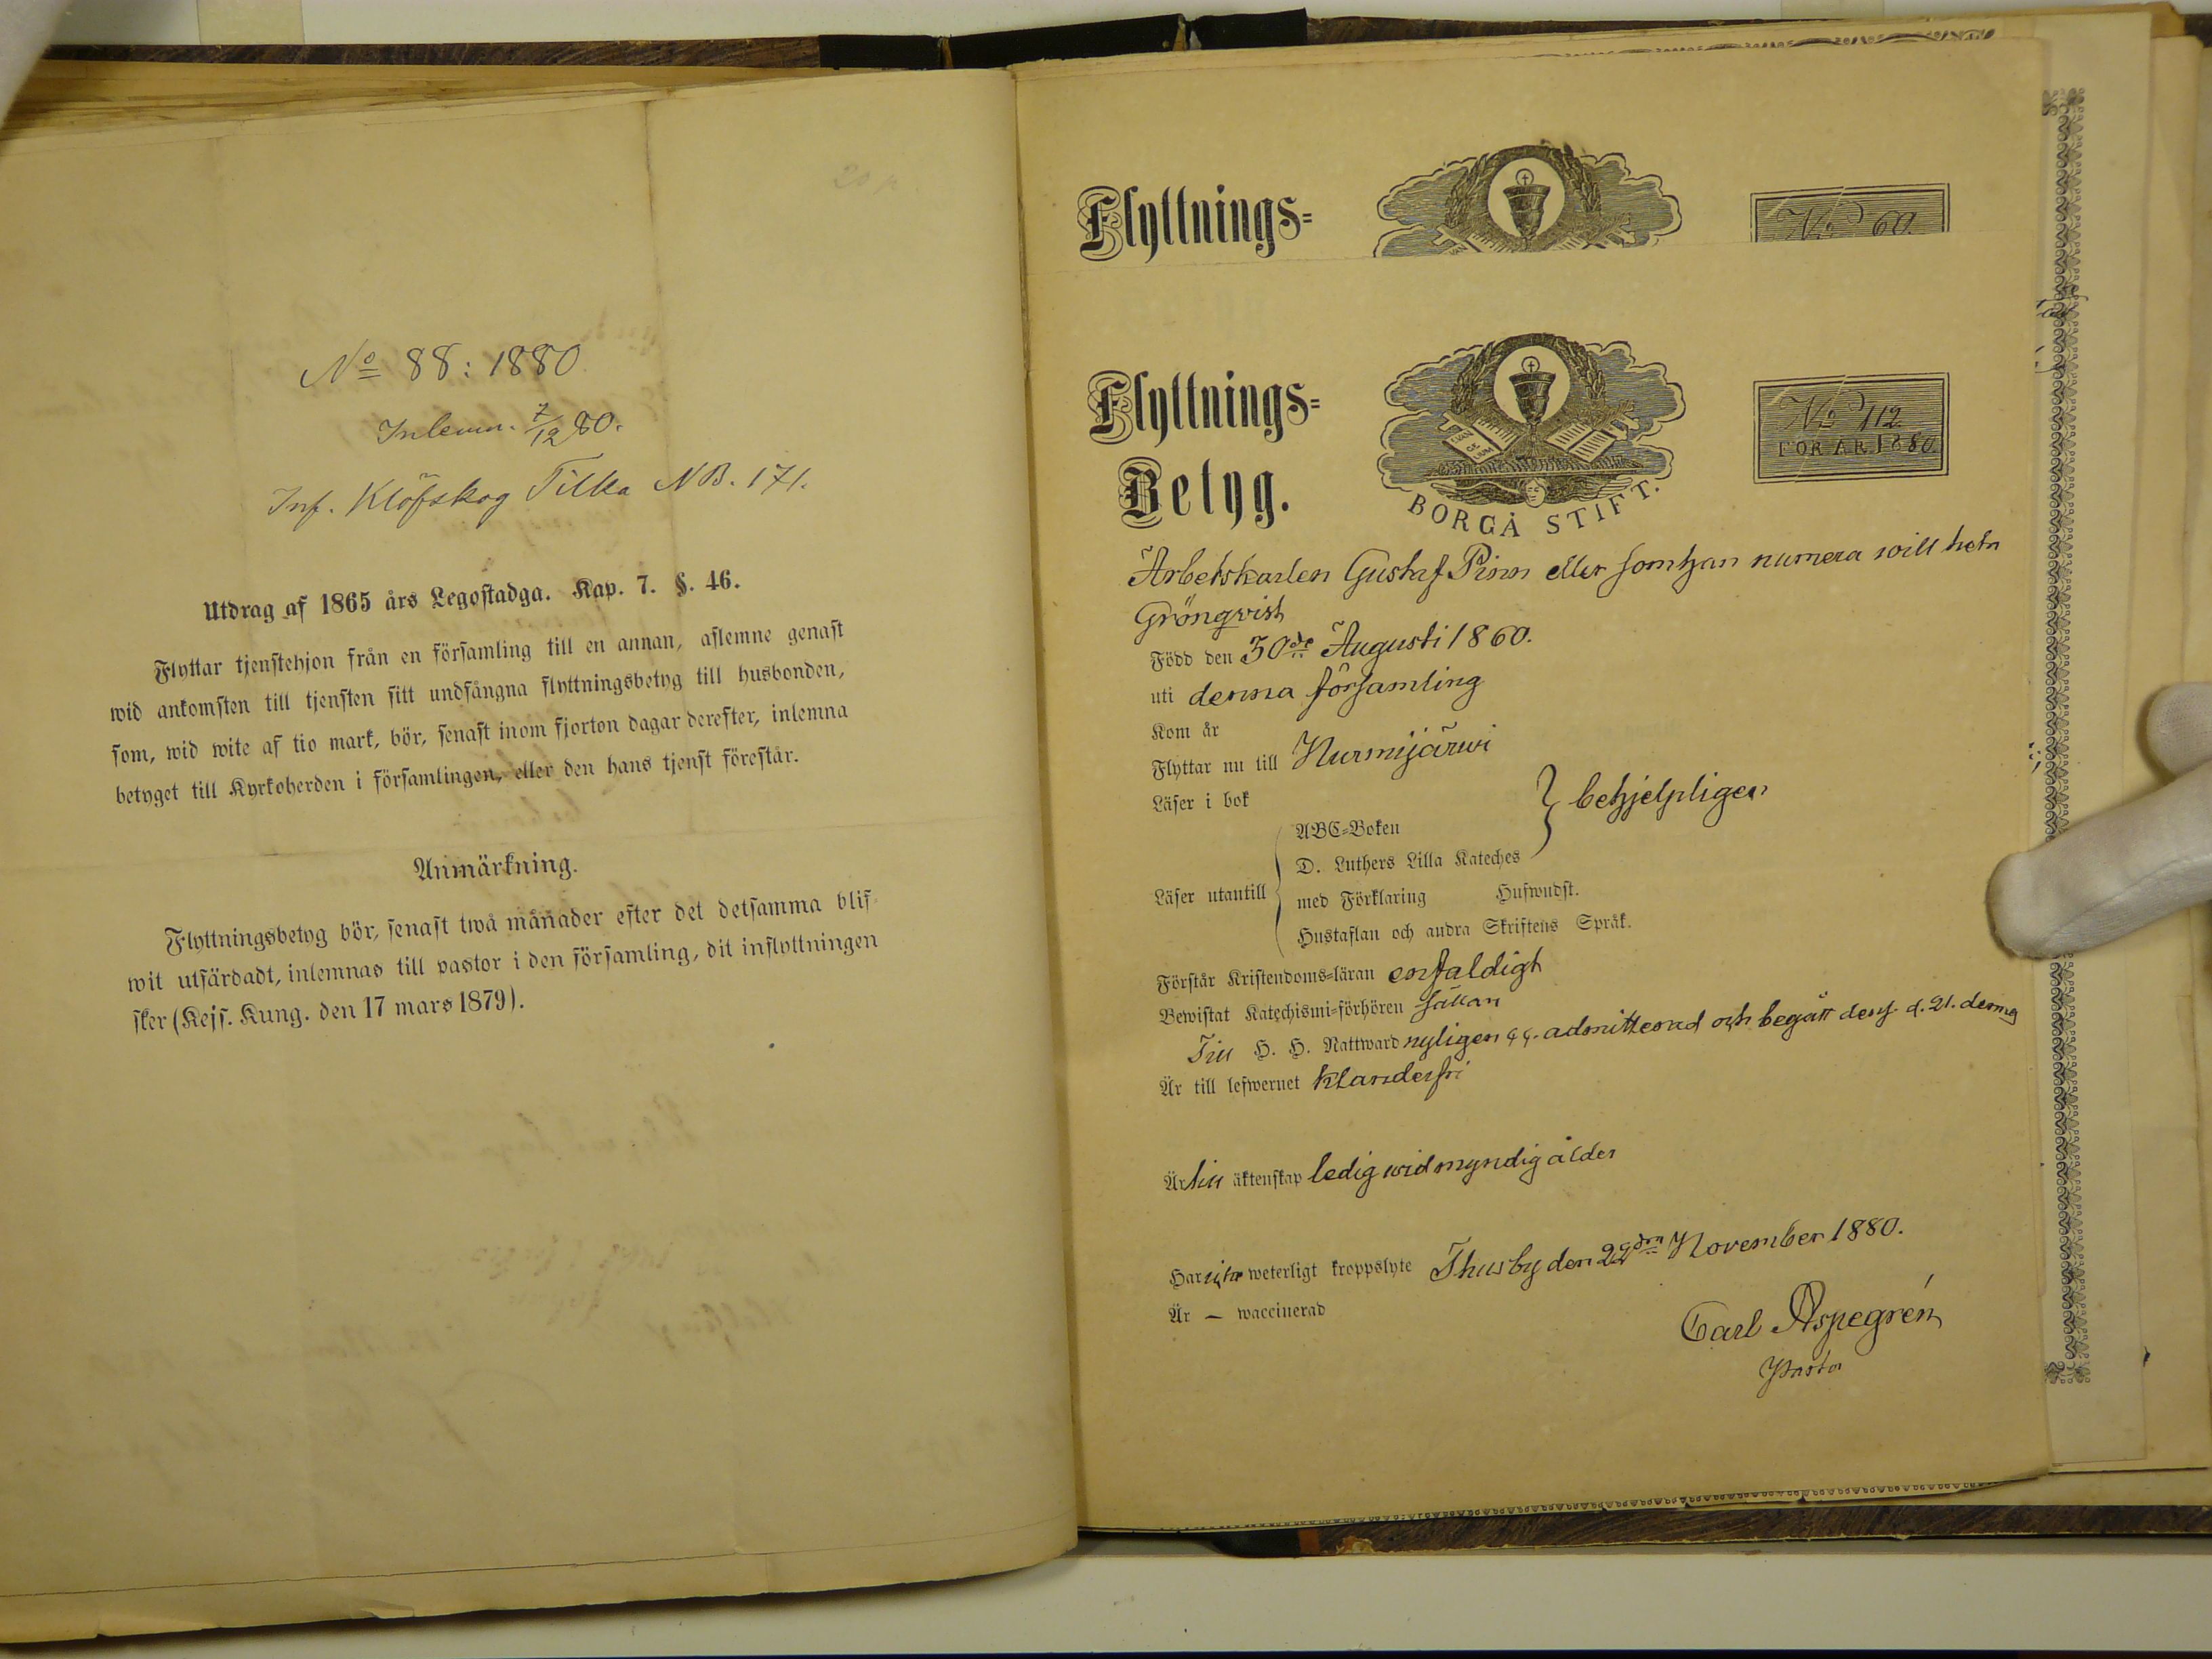 20 p
Nº 88: 1880
Inlemn. 7/12 80.
Inf. Klöfskog Tilka NB. 171.
Utdrag af 1865 års Legostadga. Kap. 7. §. 46.
Flyttar tjenstehjon från en församling till en annan, aflemne genast
wid ankomsten till tjensten sitt undfångna flyttningsbetyg till husbonden,
som, wid wite af tio mark, bör, senast inom fjorton dagar derefter, inlemna
betyget till Kyrkoherden i församlingen, eller den hans tjenst förestår.
Anmärkning.
Flyttningsbetyg bör, senast twå månader efter det detsamma blif-
wit utfärdadt, inlemnas till pastor i den församling, dit inflyttningen
sker (Kejs. Kung. den 17 mars 1879).
Flyttnings=
No 60.
Flyttnings=
Betyg.
EVAN GE LIUM
BORGÅ STIFT.
No 112.
FÖR ÅR 1880.
Arbetskarlen Gustaf Pinn eller som han numera will heta
Grönqvist
Född den 30de Augusti 1860.
uti denna församling
Kom år
Flyttar nu till Nurmijärwi
Läser i bok
ABC=Boken
D. Luthers Lilla Kateches
} behjelpligen
Läser utantill
med Förklaring Hufwudst.
Hustaflan och andra Skriftens Språk.
Förstår Kristendoms=läran enfaldigt
Bewistat Katechismi=förhören sällan
Till H. H. Nattward nyligen admitterad och begått dens. d. 21. dennes
Är till lefwernet klanderfri
Är till äktenskap ledig wid myndig ålder
Har icke weterligt kroppslyte Thusby den 22dra November 1880.
Är — waccinerad
Carl Aspegrén
Pastor